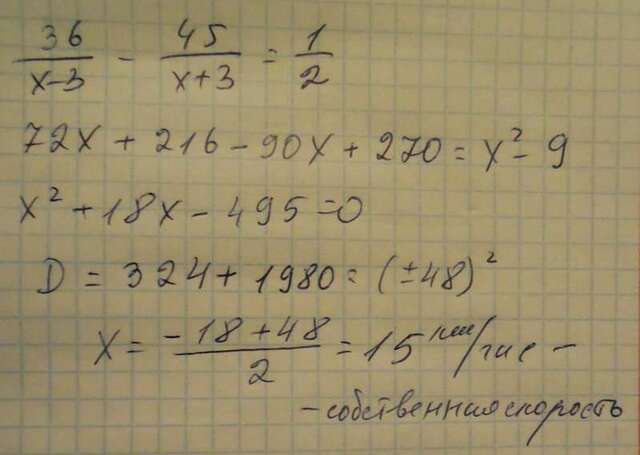 36/(x-3) - 45/(x+3) = 1/2
72x + 216 - 90x + 270 = x² - 9
x² + 18x - 495 = 0
D = 324 + 1980 = (±48)²
x = (-18 + 48)/2 = 15 км/час -
- собственная скорость